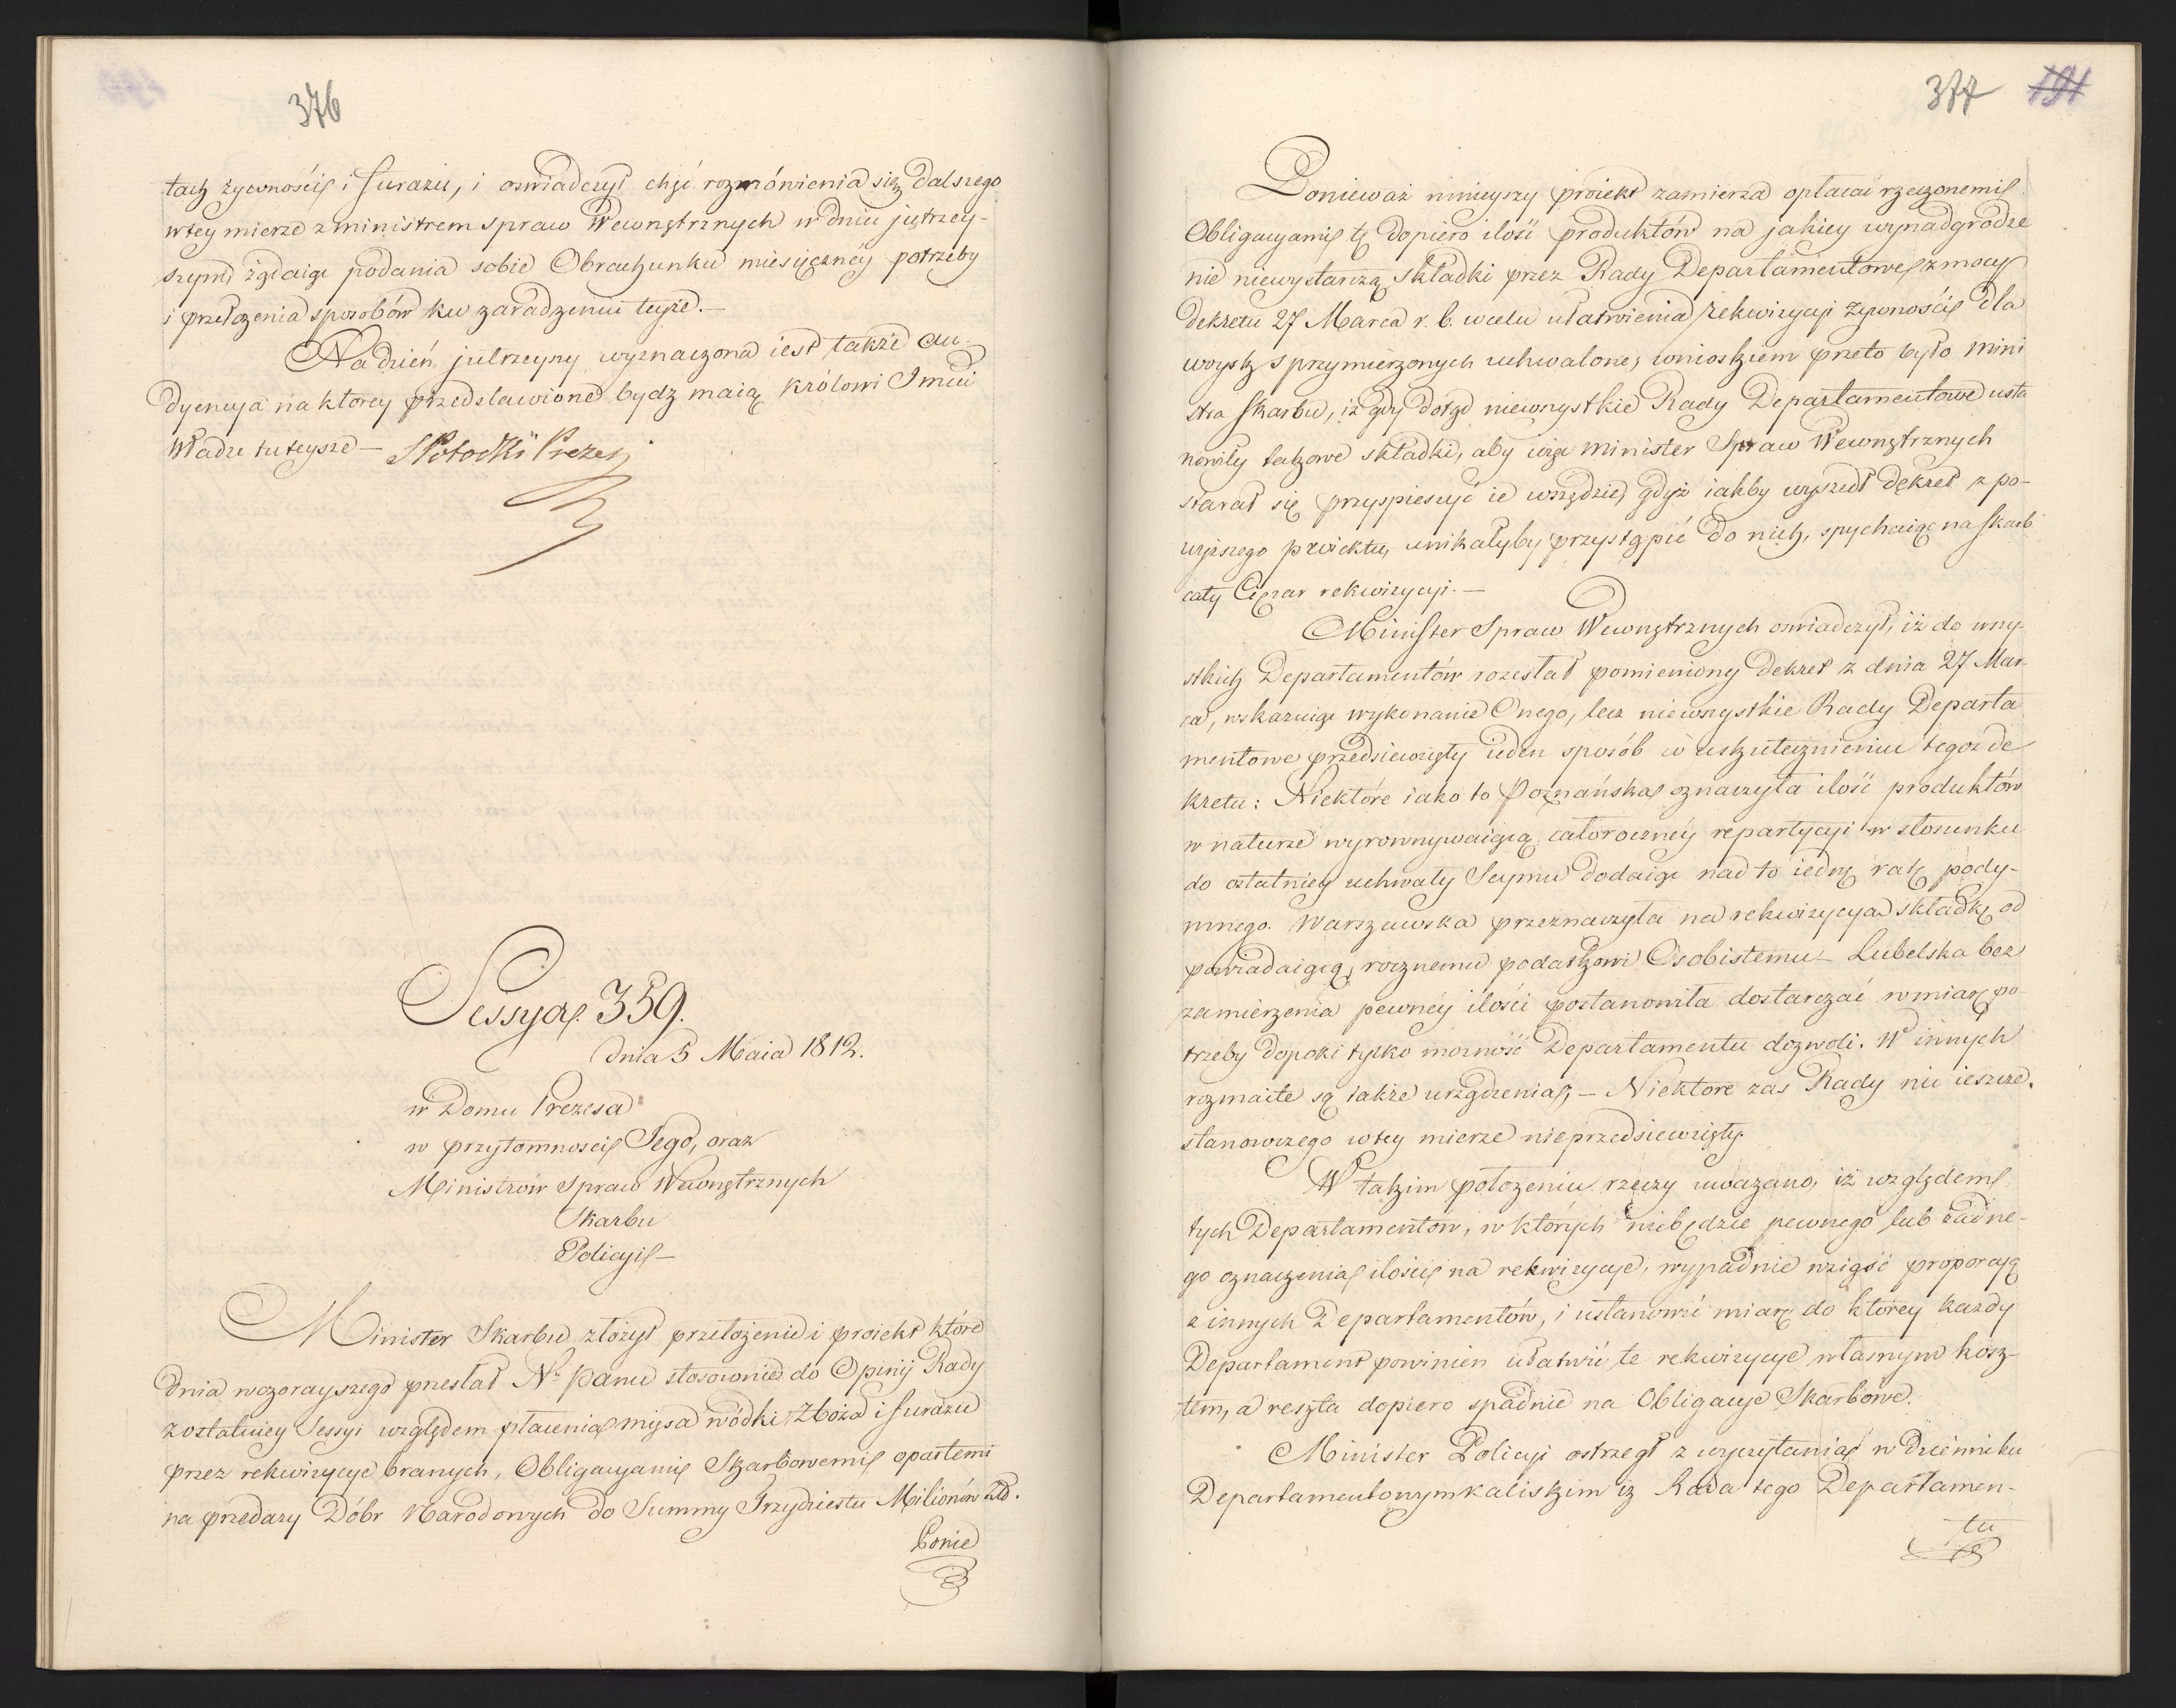 376
tach żywności i furażu, i oswiadczył chęć rozmówienia się dalszego
w tey mierze z ministrem spraw Wewnętrznych w dniu jutrzey-
szym żądaiąc podania sobie Obrachunku miesięcznéy potrzeby
i przełożenia sposobów ku zaradzeniu teyże.—
Na dzień jutrzeyszy wyznaczona iest także au-
dyencya na ktorey przedstawione bydz maią Królowi Imci
Władze tuteysze — SPotocki Prezes
Sessya 359.
dnia 5 Maia 1812.
w Domu Prezesa
w przytomnosci Jego, oraz
Ministrów Spraw Wewnętrznych
Skarbu
Policyi —
Minister Skarbu złożył przełożenie i proiekt które
dnia wczorayszego przesłał Nr. Panu stosownie do Opinij Rady
z ostatniey Sessyi względem płacenia mięsa wódki Zboża i furażu
przez rekwizycye branych, Obligacyami Skarbowemi opartemi
na przedaży Dóbr Narodowych do Summy Trzydziestu Milionów Złł.
Ponie
377 191
Ponieważ ninieyszy proiekt zamierza opłacać rzeczonemi
Obligacyami tę dopiero ilość produktów na jakiey wynadgrodze
nie niewystarczą składki przez Rady Departamentowe z mocy
dekretu 27 Marca r. b. w celu ułatwienia rekwizycyi żywności dla
woysk sprzymierzonych uchwalone; wnioskiem przeto było Mini
stra Skarbu, iż gdy dotąd niewszystkie Rady Departamentowe usta
nowiły takowe składki, aby więc Minister Spraw Wewnętrznych
starał się przyspieszyć ie wszędzie, gdyż iakby wyszedł dekret z po-
wyższego proiektu, unikałyby przystąpić do nich, spychaiąc na skarb
cały Ciężar rekwizycyi.—
Minister Spraw Wewnętrznych oswiadczył, iż do wszy-
stkich Departamentów rozesłał pomieniony dekret z dnia 27 Mar-
ca, wskazuiąc wykonanie Onego, lecz niewszystkie Rady Departa
mentowe przedsiewzięły ieden sposób w uskutecznieniu tegoż de
kretu: Niektóre iako to Poznańska oznaczyła ilość produktów
w naturze wyrownywaiącą całoroczney repartycyi w stosunku
do ostatniey uchwały Seymu dodaiąc nad to iedną ratę pody-
mnego. Warszawska przeznaczyła na rekwizycya składkę od
powiadaiącą rocznemu podatkowi Osobistemu — Lubelska bez
zamierzenia pewnéy ilości postanowiła dostarczać w miarę po-
trzeby dopoki tylko możność Departamentu dozwoli. W innych
rozmaite są także urządzenia, — Niektore zas Rady nic ieszcze
stanowczego w tey mierze nieprzedsiewzięły.
W takim położeniu rzeczy uważano, iż względem
tych Departamentów, w których niebędzie pewnego lub żadne-
go oznaczenia ilości na rekwizycye, wypadnie wziąść proporcyą
z innych Departamentów, i ustanowić miarę do ktorey każdy
Departament powinien ułatwić te rekwizycye własnym kosz-
tem, a reszta dopiero spadnie na Obligacye Skarbowe.
Minister Policyi ostrzegł z wyczytania w dzienniku
Departamentowym kaliskim iż Rada tego Departamen-
tu